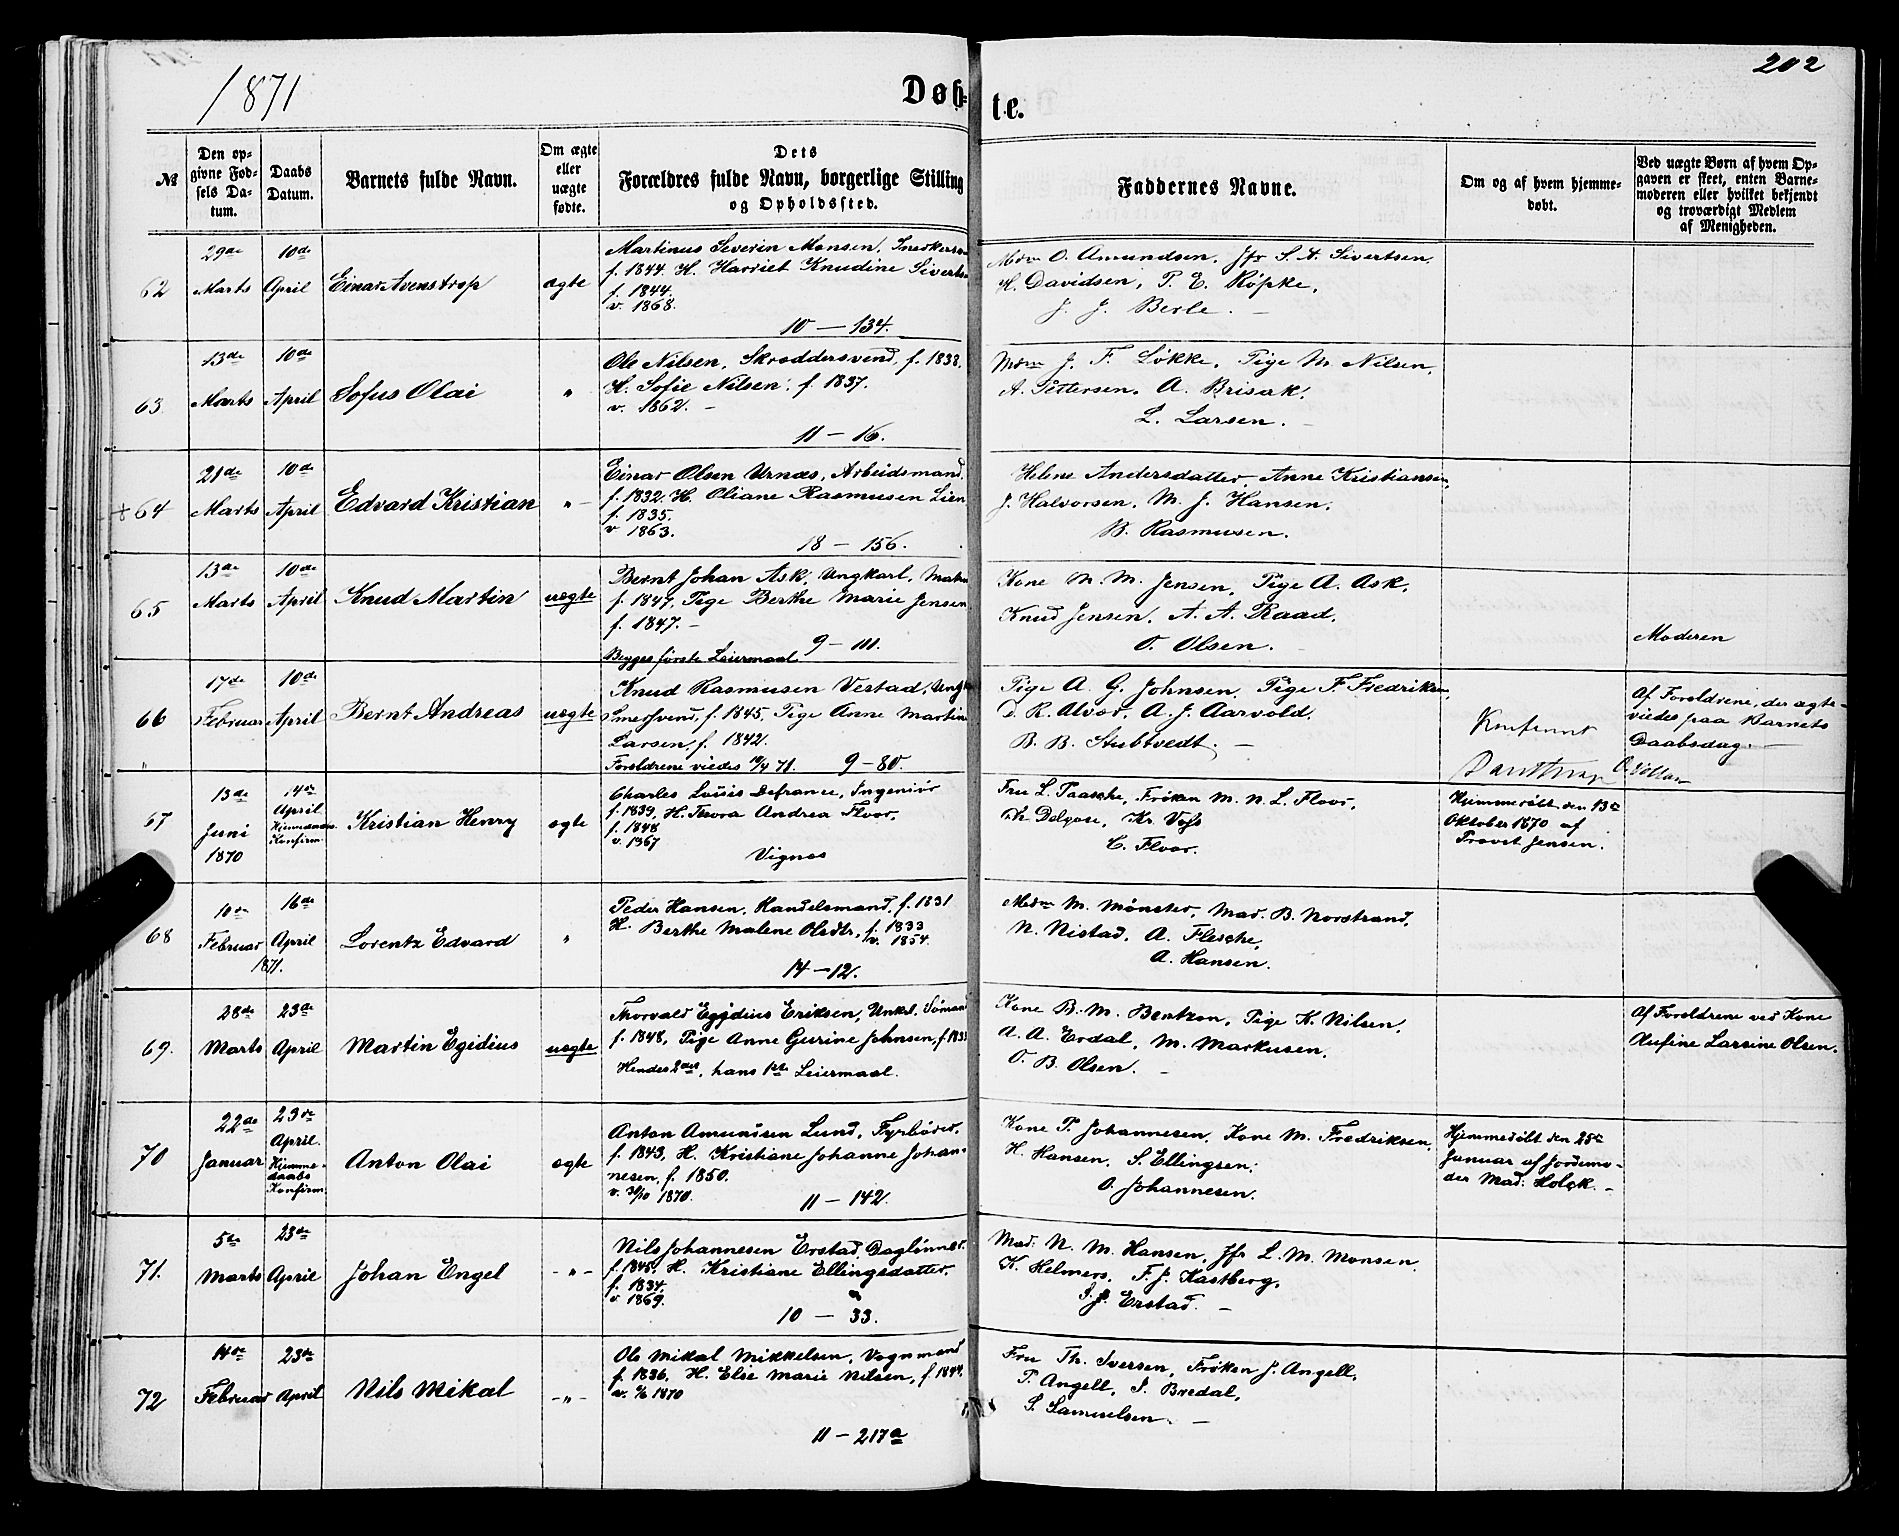 1871
Døb-
te.
202
№
Den op-
givne Fød-
sels Da-
tum.
Daabs
Datum.
Barnets fulde Navn.
Om ægte
eller
uægte
fødte.
Dets
Forældres fulde Navn, borgerlige Stilling
og Opholdssted.
Faddernes Navne.
Om og af hvem hjemme-
døbt.
Ved uægte Børn af hvem Op-
gaven er skeet, enten Barne-
moderen eller hvilket bekjendt
og troværdigt Medlem
af Menigheden.
62
29de
Marts
10de
April
Einar Avenstrop
ægte
Martinus Severin Monsen, Snedkersv
f. 1844. H. Harriet Knudine Siverts
f. 1844.
v. 1868.
10 — 134.
Mdm O. Amundsen, Jfr S. A. Sivertsen,
H. Davidsen, P. E. Röpke,
J. J. Berle. —
63
13de
Marts
10de
April
Sofus Olai
"
Ole Nilsen, Skræddersvend, f. 1838.
H. Sofie Nilsen, f. 1837.
v. 1862. —
11 — 16.
Mdm J. F. Løkke, Pige M. Nilsen,
A. Pettersen, A. Brisak,
L. Larsen. —
+ 64
21de
Marts
10de
April
Edvard Kristian
"
Einar Olsen Urnæs, Arbeidsmand
f. 1832. H. Oliane Rasmusen Lien
f. 1835.
v 1863.
18 — 156.
Helene Andersdatter, Anne Kristiansen,
J. Halvorsen, M. J. Hansen,
B. Rasmusen.
65
13de
Marts
10de
April
Knud Martin
uægte
Bernt Johan Ask, Ungkarl, Matr
f. 1847, Pige Berthe Marie Jensen
f. 1847. —
9 — 111.
Begges første Leiermaal
Kone M. M. Jensen, Pige A. Ask,
Knud Jensen, A. A. Raad,
O. Olsen. —
Moderen
66
17de
Februar
10de
April
Bernt Andreas
uægte
Knud Rasmusen Vestad, Ungk
Smedsvend, f. 1845, Pige Anne Martine
Larsen, f. 1842.
Forældrene viedes 10/4 71. 9 — 80.
Pige A. G. Johnsen, Pige F. Fredriksen,
D. R. Alvær, A. J. Aarvold,
B. B. Stubtvedt. —
Af Forældrene, der ægte-
viedes paa Barnets
Daabsdag. —
67
13de
Juni
1870
14de
April
Hjemmedaabs
Konfirm
Kristian Henry
ægte
Charles Louis Defrance, Ingeniør
f. 1839, H. Thora Andrea Floor,
f. 1848
v. 1867
Vignæs
Fru L. Paasche, Frøken M. N. L. Floor,
Kr. Voss
C. Floor.
Hjemmedøbt den 13de
Oktober 1870 af
Provst Jensen.
68
10de
Februar
16de
April
1871.
Lorentz Edvard
"
Peder Hansen, Handelsmand, f. 1831
H. Berthe Malene Olsdtr, f. 1833
v. 1854.
14 — 12.
Mdm M. Mønster, Mad. B. Norstrand,
N. Nistad, A. Flesche,
A. Hansen.
69.
28de
Marts
23de
April
Martin Egidius
uægte
Thorvald Egidius Eriksen, Unkl. Sømand
f. 1848, Pige Anne Gurine Johnsen, f. 183
Hendes 2det, hans 1ste Leiermaal.
Kone B. M. Bentzon, Pige K. Nilsen,
A. A. Erdal, M. Markusen,
O. B. Olsen. —
Af Forældrene ved Kone
Rufine Larsine Olsen.
70
22de
Januar
23de
April.
Hjemme-
daabs
Konfirm
Anton Olai
ægte
Anton Amundsen Lund, Fyrbøder,
f. 1843, H. Kristiane Johanne Johan-
nesen, f. 1850.
v. 30/10 1870.
11 — 142.
Kone P. Johannesen, Kone M. Fredriksen,
H. Hansen, S. Ellingsen,
O. Johannesen.
Hjemmedøbt den 25de
Januar af Jordemo-
der Mad. Holck. —
71.
5de
Marts
23de
April
Johan Engel
- " -
Nils Johannesen Erstad, Daglønner.
f. 1845, H. Kristiane Ellingsdatter,
f. 1834.
v 1869.
10 — 33.
Mad. N. M. Hansen, Jfr L. M. Monsen,
K. Helmers, F. J. Kastberg,
S. J. Erstad. —
72
14de
Februar
23de
April
Nils Mikal
- " -
Ole Mikal Mikkelsen, Vognmand
f. 1836, H. Else Marie Nilsen, f 1844.
11 — 217a
Fru Th. Iversen, Frøken J. Angell,
P. Angell, J. Bredal,
S. Samuelsen. —